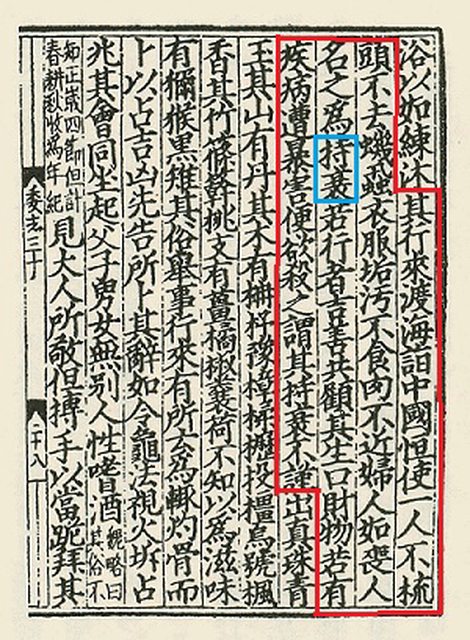 浴以如練沐其行來渡海詣中國恒使一人不梳
頭不去蟣蝨衣服垢污不食肉不近婦人如喪人
名之為持衰若行者吉善共顧其生口財物若有
疾病遭暴害便欲殺之謂其持衰不謹出真珠青
玉其山有丹其木有柟杼豫樟楺櫪投橿烏號楓
香其竹篠簳桃支有薑橘椒蘘荷不知以為滋味
有獼猴黑雉其俗舉事行來有所云為輒灼骨而
卜以占吉凶先告所卜其辭如令龜法視火坼占
兆其會同坐起父子男女無別人性嗜酒魏略曰其俗不
知正歲四節但計春耕秋收為年紀見大人所敬但搏手以當跪拜其
委志三十
二十八